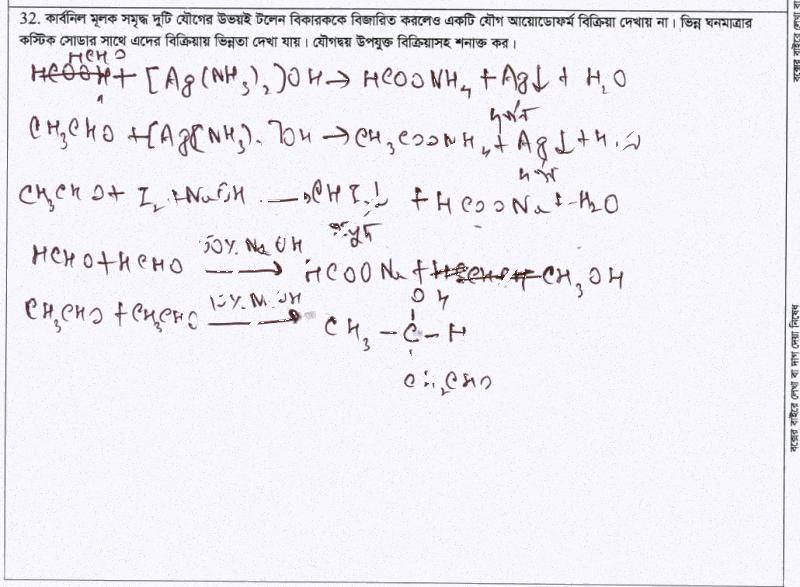 32. কার্বনিল মূলক সমৃদ্ধ দুটি যৌগের উভয়ই টলেন বিকারককে বিজারিত করলেও একটি যৌগ আয়োডোফর্ম বিক্রিয়া দেখায় না। ভিন্ন ঘনমাত্রার
কস্টিক সোডার সাথে এদের বিক্রিয়ায় ভিন্নতা দেখা যায়। যৌগদ্বয় উপযুক্ত বিক্রিয়াসহ শনাক্ত কর।
HCHO
HCOOH + [Ag(NH3)2]OH → HCOONH4 + Ag↓ + H2O
CH3CHO + [Ag(NH3)2]OH → CH3COONH4 + Ag↓ +
CH3CHO + I2 + NaOH → CHI3↓ + HCOONa + H2O
HCHO + HCHO 50% NaOH → HCOONa + CH3OH
CH3CHO + CH3CHO 10% NaOH → CH3 – C – H
OH
CH2CHO
বক্সের বাইরে লেখা বা দাগ দেয়া নিষেধ